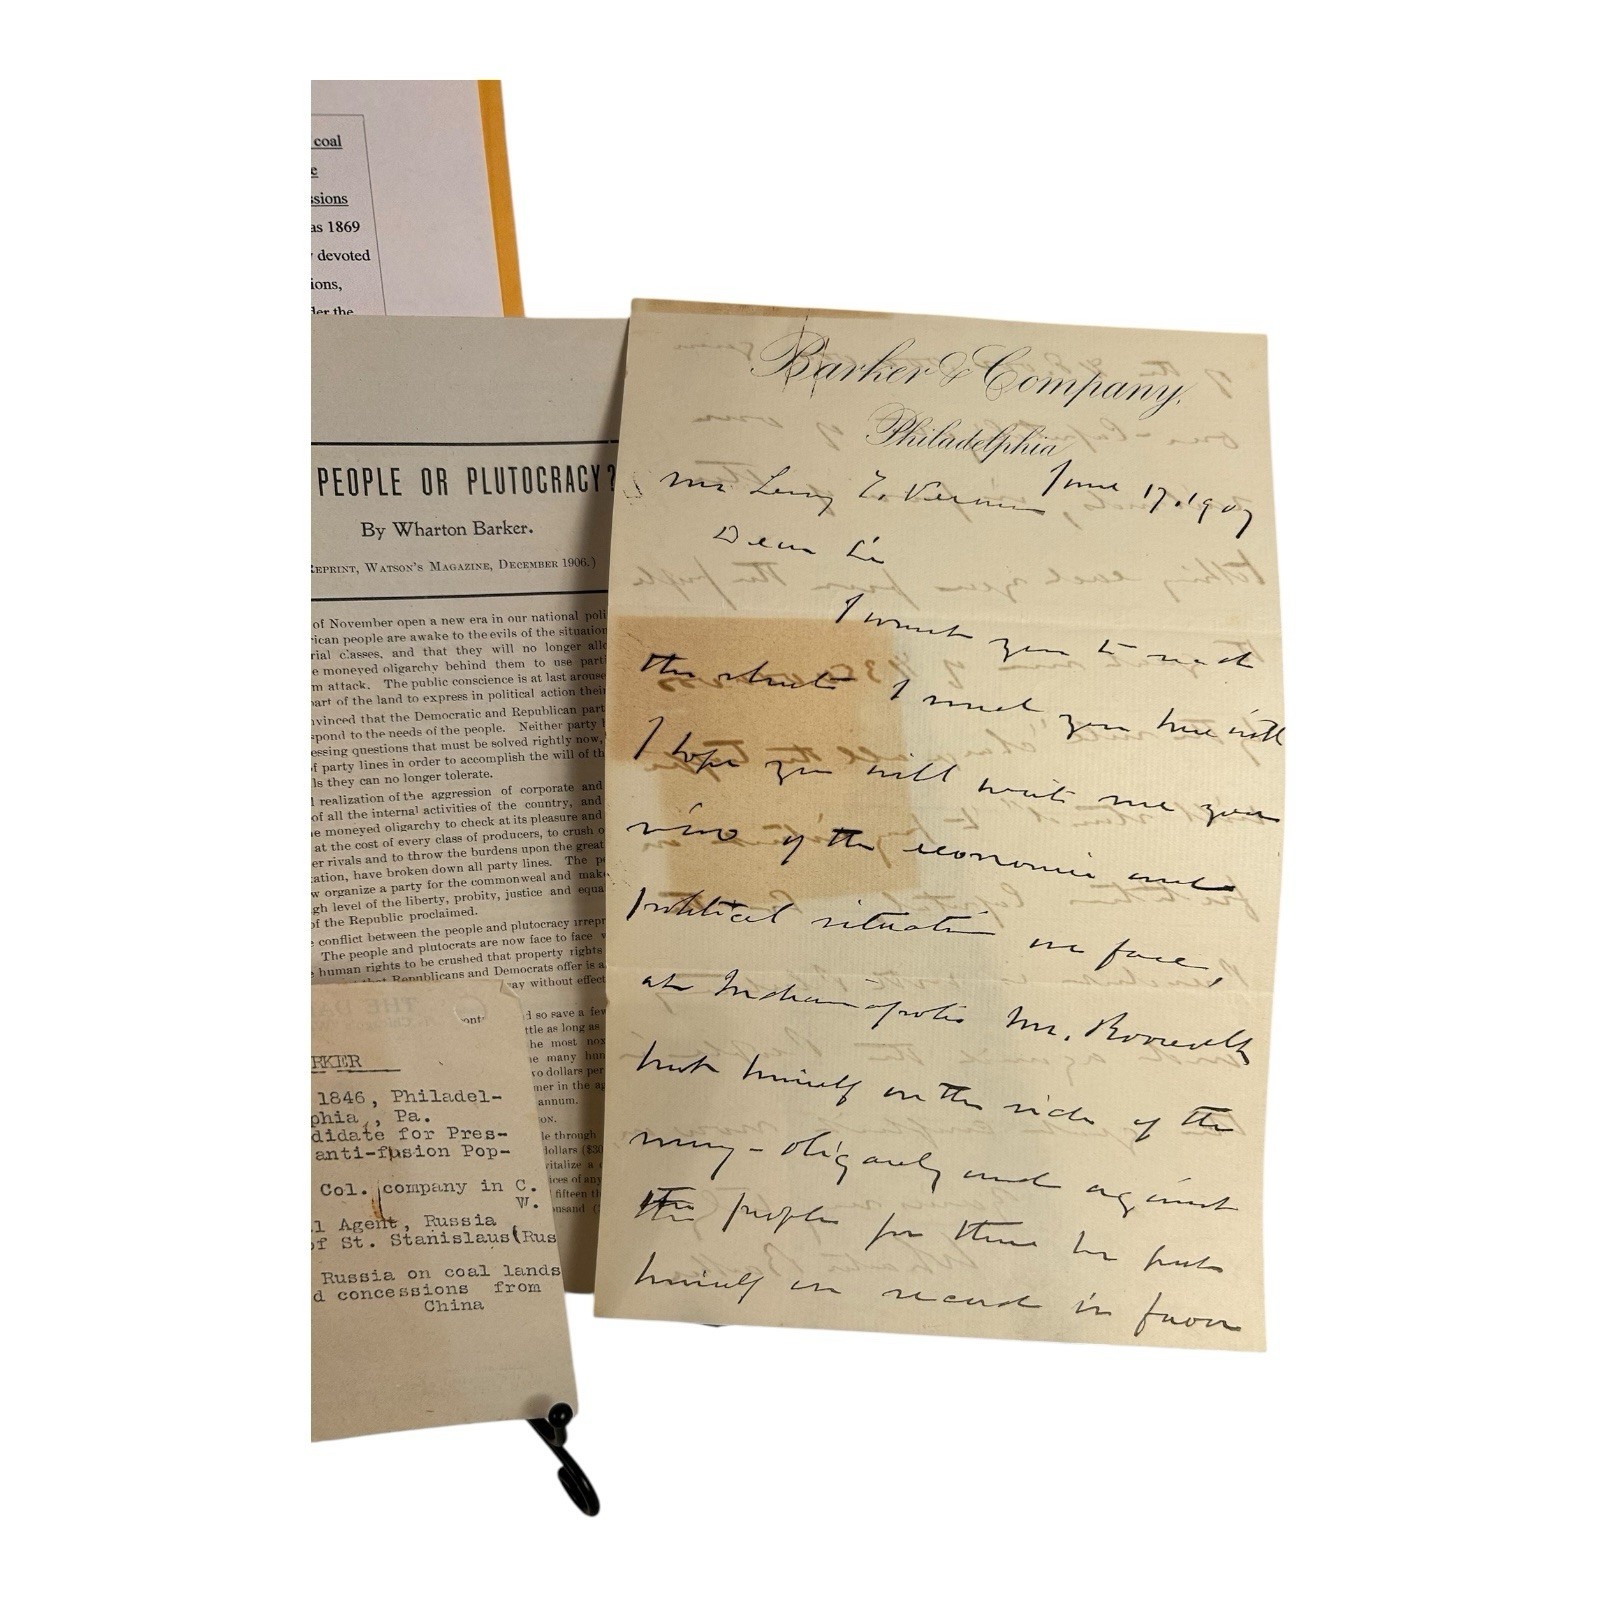 coal
e
ssions
as 1869
devoted
ions,
der the
PEOPLE OR PLUTOCRACY?
By Wharton Barker.
REPRINT, WATSON'S MAGAZINE, DECEMBER 1906.)
of November open a new era in our national poli
rican people are awake to the evils of the situation
rial classes, and that they will no longer allo
e moneyed oligarchy behind them to use part
m attack. The public conscience is at last arouse
part of the land to express in political action their
nvinced that the Democratic and Republican part
spond to the needs of the people. Neither party
essing questions that must be solved rightly now,
f party lines in order to accomplish the will of th
ls they can no longer tolerate.
l realization of the aggression of corporate and
of all the internal activities of the country, and
e moneyed oligarchy to check at its pleasure and
at the cost of every class of producers, to crush o
er rivals and to throw the burdens upon the great
tation, have broken down all party lines. The pe
w organize a party for the commonweal and make
gh level of the liberty, probity, justice and equa
of the Republic proclaimed.
e conflict between the people and plutocracy irrepr
The people and plutocrats are now face to face w
e human rights to be crushed that property rights
that Republicans and Democrats offer is a
ay without effect
d so save a few
ttle as long as
he most nox
e many hun
vo dollars per
mer in the ag
annum.
ON.
le through
dollars ($30
vitalize a
ices of any
fifteen th
ousand (
RKER
1846, Philadel-
phia, Pa.
didate for Pres-
anti-fusion Pop-
Col. company in C.
W.
l Agent, Russia
of St. Stanislaus(Rus
Russia on coal lands
d concessions from
China
Barker & Company,
Philadelphia
June 17. 1907
Mr. Leroy T. Vernon
Dear Sir
I want you to read
the sheets I send you herewith
I hope you will write me your
view of the economic and
political situation we face,
at Indianapolis Mr. Roosevelt
put himself on the side of the
money-oligarchy and against
the people for there he put
himself on record in favor